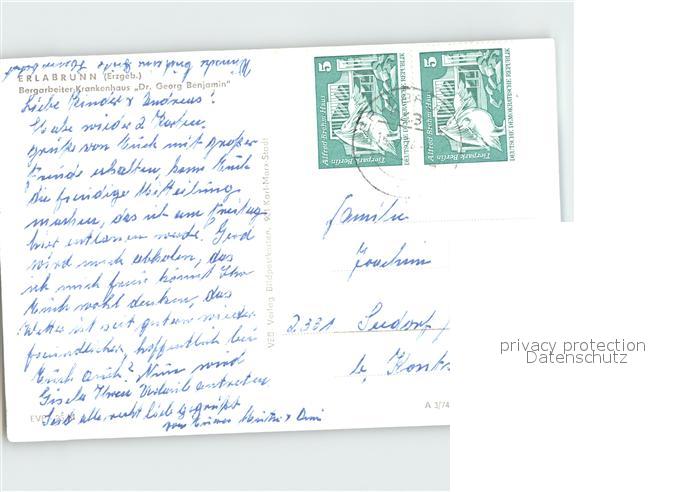 ERLABRUNN (Erzgeb.)
Bergarbeiter-Krankenhaus „Dr. Georg Benjamin"
Liebe Kinder & Andreas!
Habe wieder 2 Karten
grüße von Euch mit großer
Freude erhalten, kann Euch
die freudige Mitteilung
machen, das ich am Freitag
hier entlassen werde. Gerd
wird mich abholen, das
ich mich freue könnt Ihr
Euch wohl denken, das
Wetter ist seit gestern wieder
freundlicher, hoffentlich bei
Euch auch? Nun wird
Gisela Ihren Urlaub antreten
Seid alle recht lieb gegrüßt
von Eurer Mutti & Omi
VEB Verlag Bildpostkarten, Karl-Marx-Stadt
5
Alfred-Brehm-Haus
Tierpark Berlin
DEUTSCHE DEMOKRATISCHE REPUBLIK
5
Alfred-Brehm-Haus
Tierpark Berlin
DEUTSCHE DEMOKRATISCHE REPUBLIK
Familie
Joachim
2331 Seedorf
A 3/74
privacy protection
Datenschutz